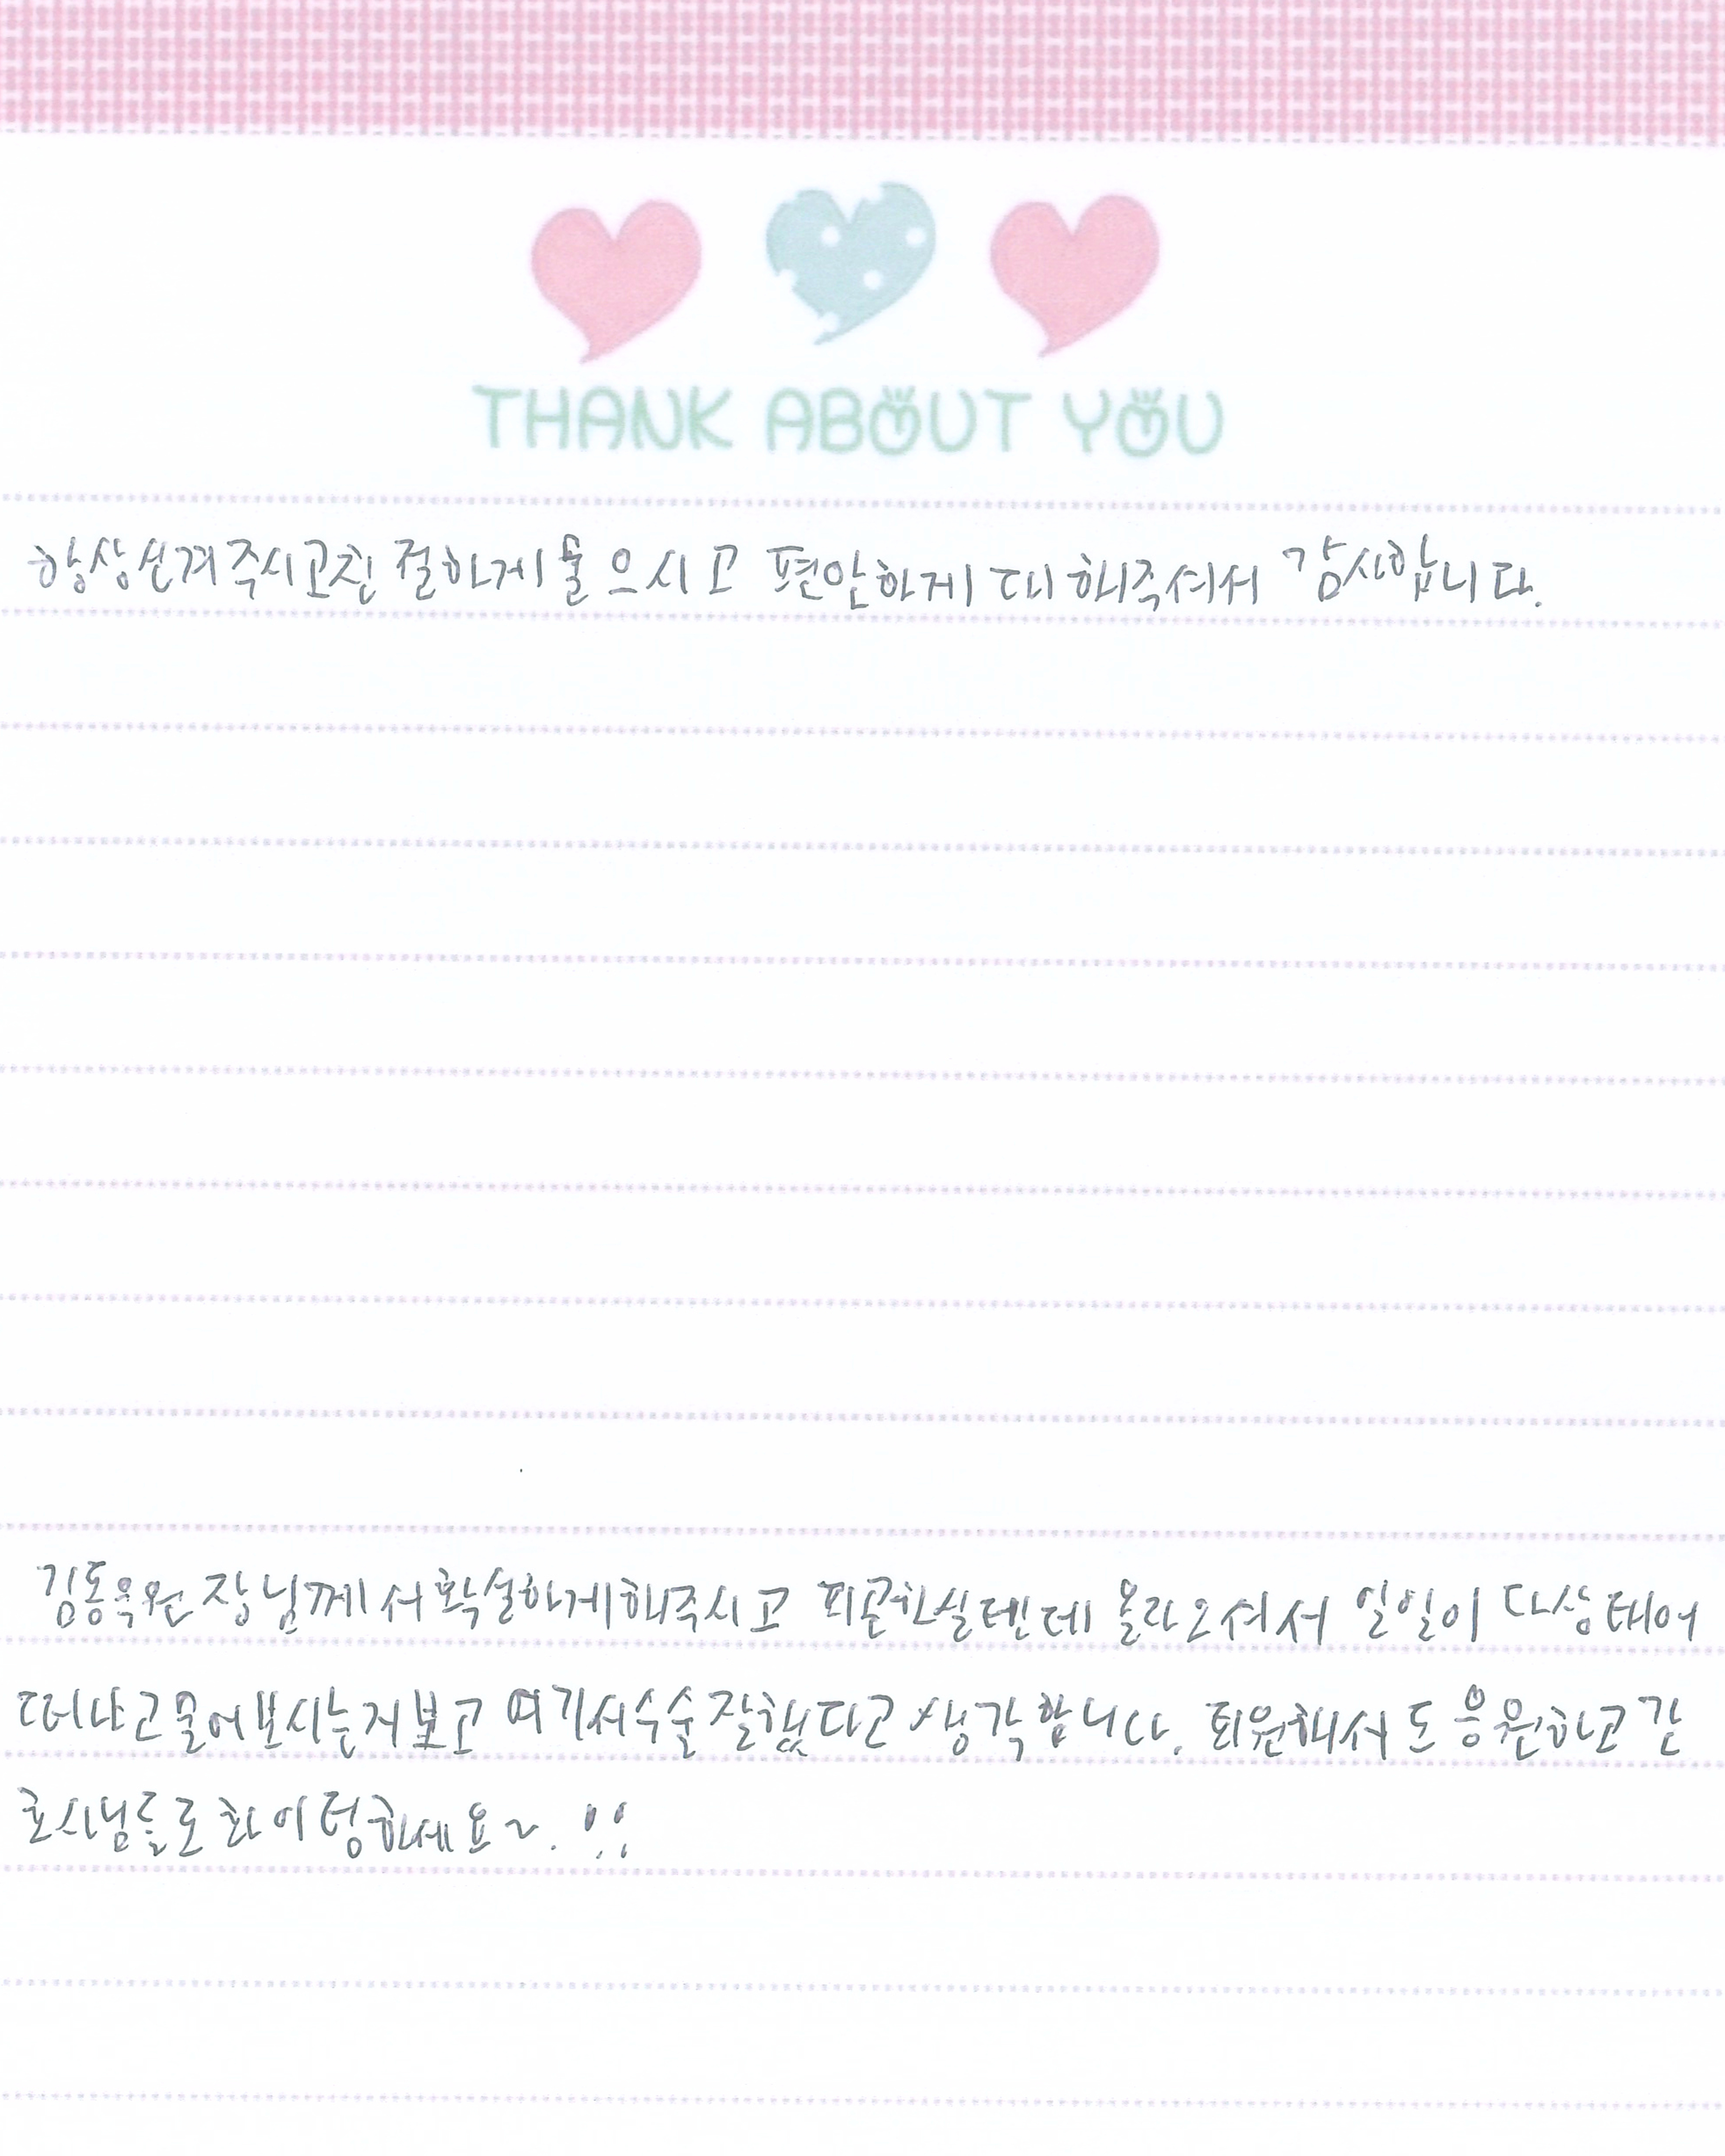 THANK ABOUT YOU
항상신겨주시고친절하게물으시고 편안하게 대해주셔서 감사합니다.
김동욱원장님께서확실하게해주시고 피곤하실텐데 올라오셔서 일일이 다상태어
떠냐고물어보시는거보고 여기서수술잘했다고 생각합니다. 퇴원해서도응원하고간
호사님들로화이팅하세요~. !!